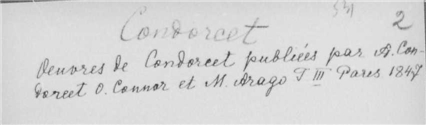 Condorcet
2
Oeuvres de Condorcet publiées par A. Con-
dorcet O. Connor et M. Arago T III Paris 1847